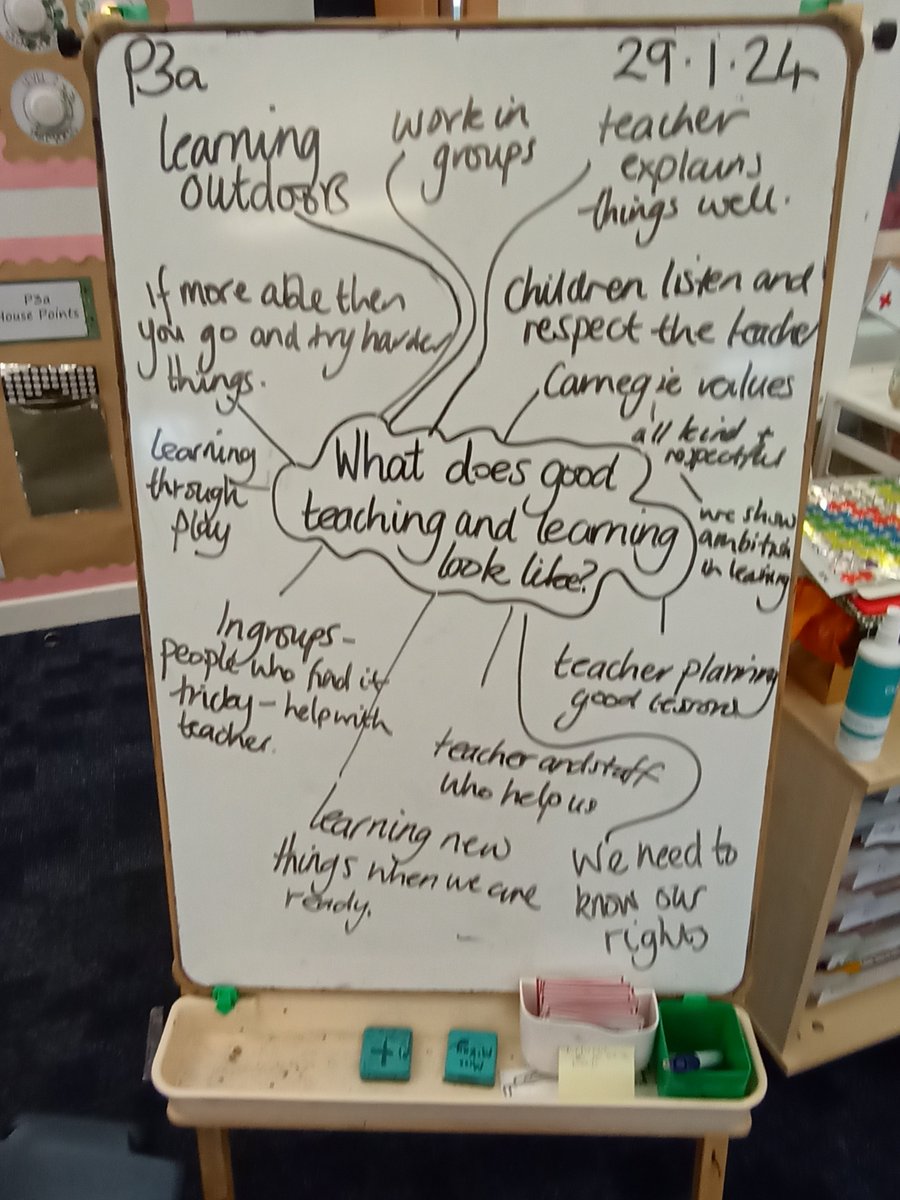 P3a
29.1.24
learning
outdoors
work in
groups
teacher
explains
things well.
If more able then
you go and try harder
things.
children listen and
respect the teacher
Carnegie values
all kind +
respectful
we show
ambition
in learning
learning
through
play
What does good
teaching and learning
look like?
In groups -
people who find it
tricky - help with
teacher.
teacher planning
good lessons
teacher and staff
who help us
learning new
things when we are
ready.
We need to
know our
rights
P3a
House Points